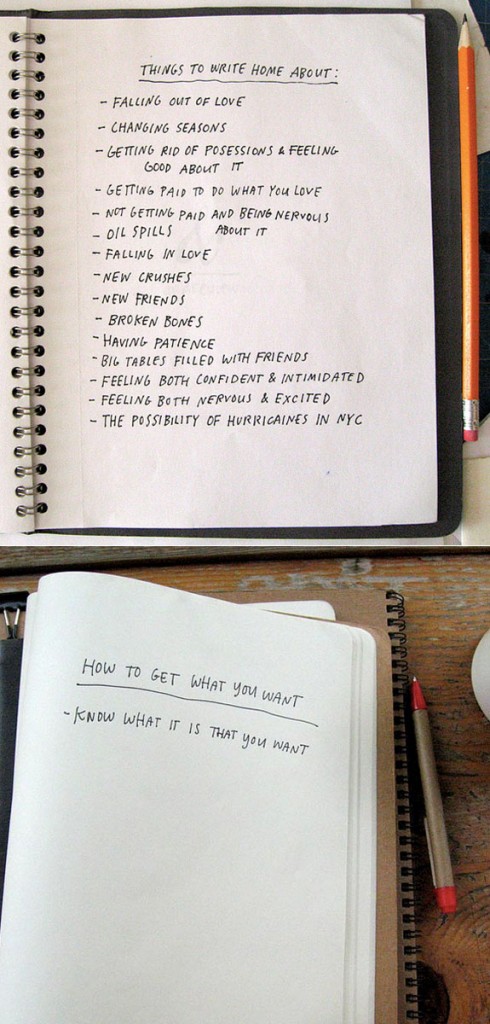 THINGS TO WRITE HOME ABOUT:
- FALLING OUT OF LOVE
- CHANGING SEASONS
- GETTING RID OF POSESSIONS & FEELING
GOOD ABOUT IT
- GETTING PAID TO DO WHAT YOU LOVE
- NOT GETTING PAID AND BEING NERVOUS
ABOUT IT
- OIL SPILLS
- FALLING IN LOVE
- NEW CRUSHES
- NEW FRIENDS
- BROKEN BONES
- HAVING PATIENCE
- BIG TABLES FILLED WITH FRIENDS
- FEELING BOTH CONFIDENT & INTIMIDATED
- FEELING BOTH NERVOUS & EXCITED
- THE POSSIBILITY OF HURRICAINES IN NYC
HOW TO GET WHAT YOU WANT
- KNOW WHAT IT IS THAT YOU WANT